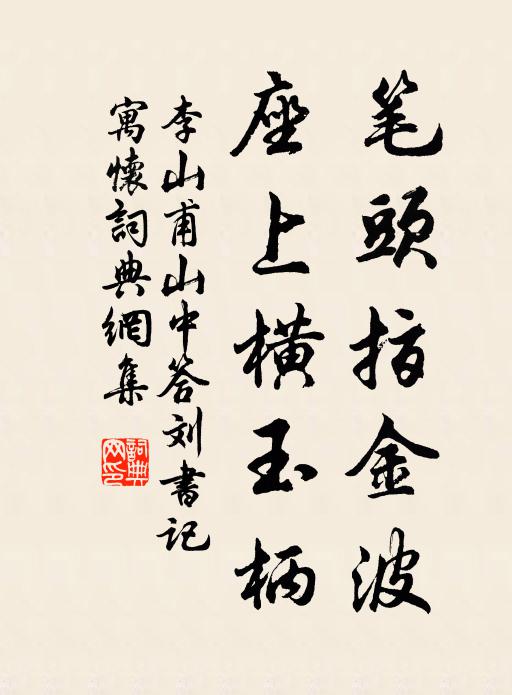 笔頭指金波
座上橫玉柄
李山甫山中答刘書記
寓懷詞典網集
詞典
网印